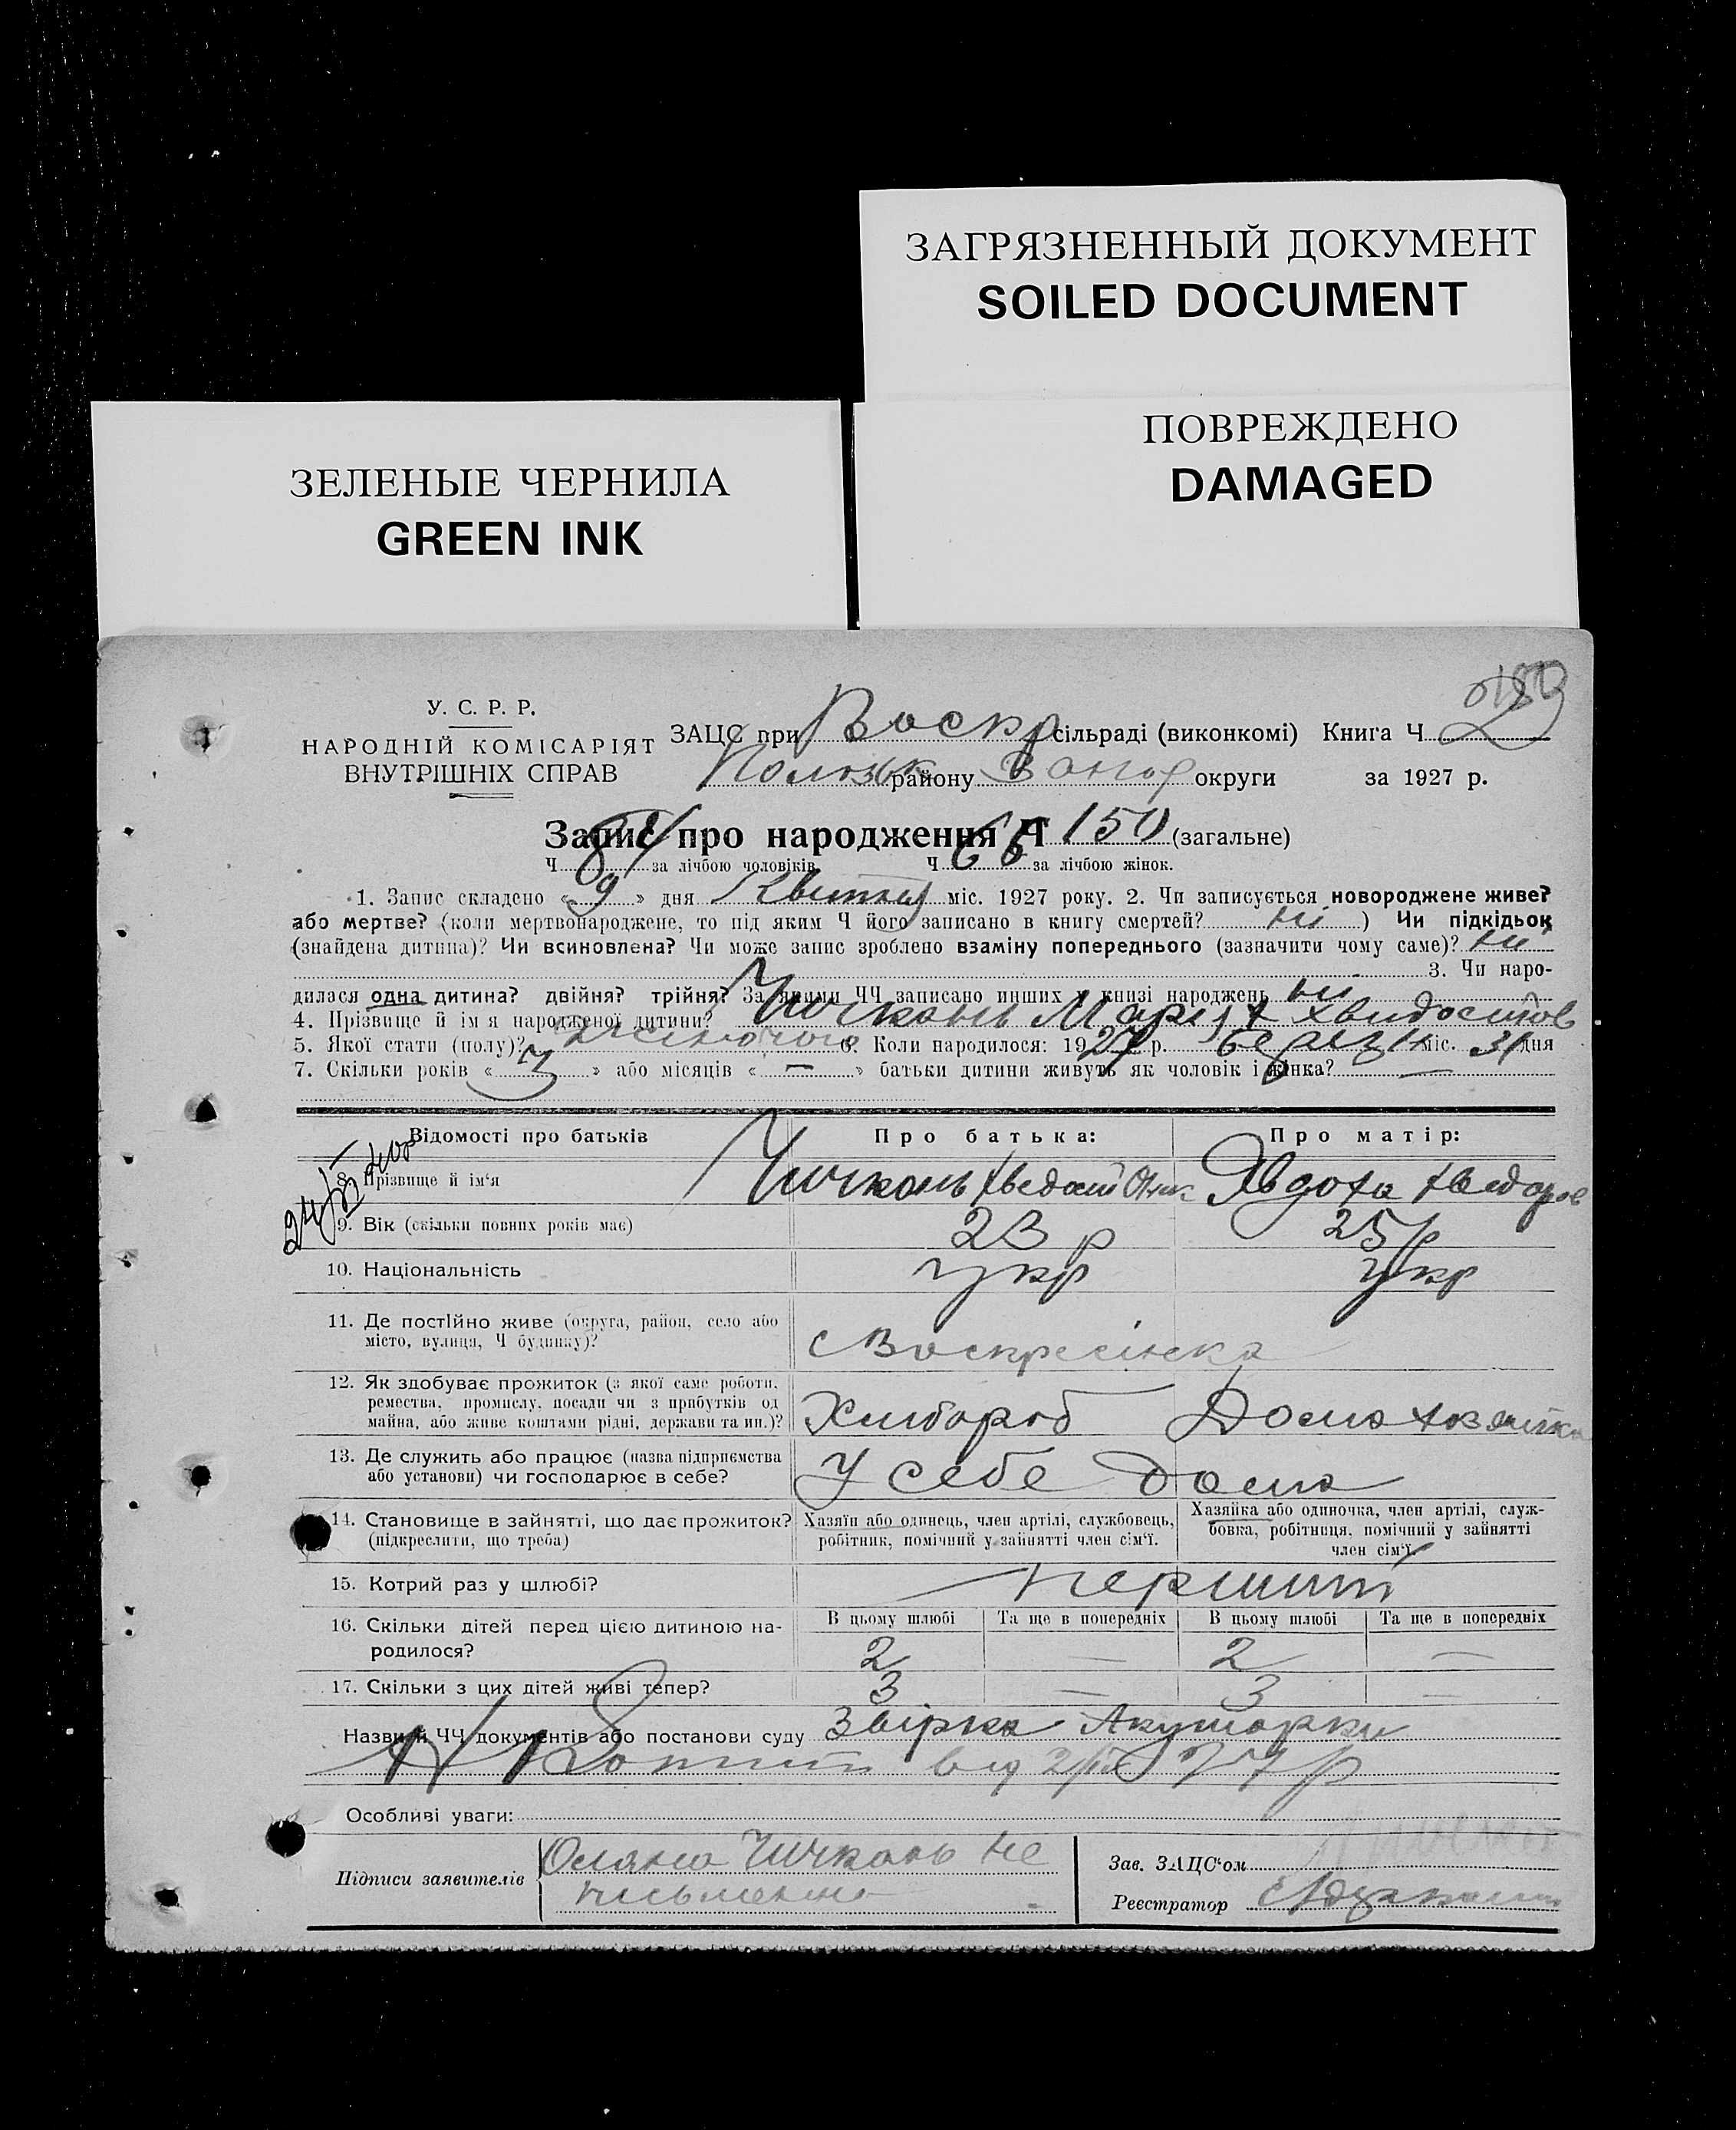 ЗАГРЯЗНЕННЫЙ ДОКУМЕНТ
SOILED DOCUMENT
ПОВРЕЖДЕНО
DAMAGED
ЗЕЛЕНЫЕ ЧЕРНИЛА
GREEN INK
У. С. Р. Р.
НАРОДНІЙ КОМІСАРІЯТ
ВНУТРІШНІХ СПРАВ
ЗАЦС при Воскр сільраді (виконкомі) Книга Ч 2
району Запор округи за 1927 р.
Запис про народження Ч 150 (загальне)
Ч 84 за лічбою чоловіків Ч 66 за лічбою жінок.
1. Запис складено « 9 » дня Квітня міс. 1927 року. 2. Чи записується новороджене живе?
або мертве? (коли мертвонароджене, то під яким Ч його записано в книгу смертей? ні ) Чи підкідьок
(знайдена дитина)? Чи всиновлена? Чи може запис зроблено взаміну попереднього (зазначити чому саме)? ні
3. Чи наро-
дилася одна дитина? двійня? трійня? За якими ЧЧ записано инших у книзі народжень ні
4. Прізвище й ім'я народженої дитини? Чичкань Марія Хвидосітов
5. Якої стати (полу)? жіночого 6. Коли народилося: 1927 р. березня міс. 31 дня
7. Скільки років « 3 » або місяців « — » батьки дитини живуть як чоловік і жінка? —
Відомості про батьків Про батька: Про матір:
8. Прізвище й ім'я Чичкань Хведосій Явдоха Хведоров
9. Вік (скільки повних років має) 23 р 25 р
10. Національність укр укр
11. Де постійно живе (округа, район, село або
місто, вулиця, Ч будинку)? с Воскресінска
12. Як здобуває прожиток (з якої саме роботи,
ремества, промислу, посади чи з прибутків од
майна, або живе коштами рідні, держави та ин.)? Хлибороб Дома хозяйка
13. Де служить або працює (назва підприємства
або установи) чи господарює в себе? У себе дома
14. Становище в зайнятті, що дає прожиток?
(підкреслити, що треба)
Хазяїн або одинець, член артілі, службовець,
робітник, помічний у зайнятті член сім'ї.
Хазяйка або одиночка, член артілі, служ-
бовка, робітниця, помічний у зайнятті
член сім'ї.
15. Котрий раз у шлюбі? перший
В цьому шлюбі Та ще в попередніх В цьому шлюбі Та ще в попередніх
16. Скільки дітей перед цією дитиною на-
родилося? 2 — 2 —
17. Скільки з цих дітей живі тепер? 3 — 3 —
Назви й ЧЧ документів або постанови суду Звірка Акушорки
від 27 р
Особливі уваги:
Підписи заявителів Оляна Чичкань не
письменна
Зав. ЗАЦС'ом
Реєстратор